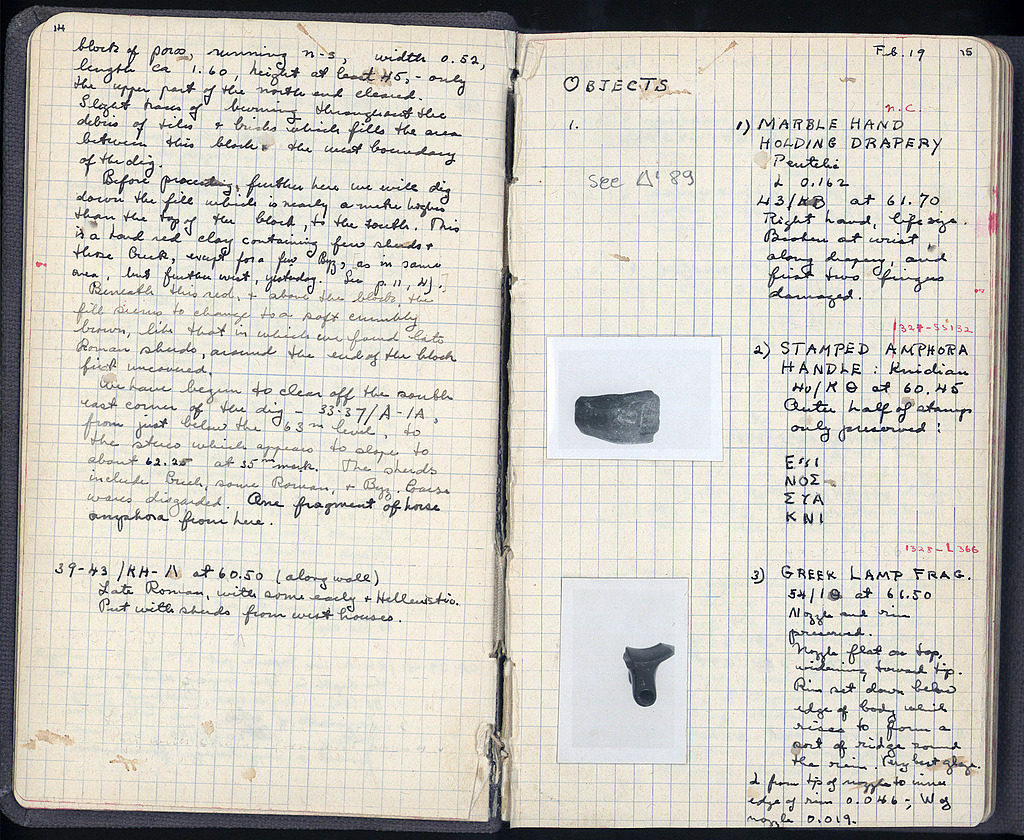 14
block of poros, running n-s, width 0.52,
length ca 1.60, height at least 45, - only
the upper part of the north end cleared.
Slight traces of burning throughout the
debris of tiles + bricks which fills the area
between this block + the west boundary
of the dig.
Before proceeding, further here we will dig
down the fill which is nearly a metre higher
than the top of the block, to the south. This
is a hard red clay containing few sherds +
those Greek, except for a few Byz, as in same
area, but further west, yesterday. See p. 11, 4).
Beneath this red, + above the block, the
fill seems to change to a soft crumbly
brown, like that in which we found late
Roman sherds, around the end of the block
first uncovered.
We have begun to clear off the south
east corner of the dig - 33-37/A-1A,
from just below the 63 m level, to
the stereo which appears to slope to
about 62.25 at 35 m mark. The sherds
include Greek, some Roman, + Byz. Coarse
wares disgarded. One fragment of horse
amphora from here.
39-43/KH-Λ at 60.50 (along wall)
Late Roman, with some early + Hellenistic.
Put with sherds from west houses.
Feb. 19 15
OBJECTS
1.
see Δ' 89
n.c.
1) MARBLE HAND
HOLDING DRAPERY
Pentelic
L 0.162
43/KB at 61.70
Right hand, life size.
Broken at wrist
along drapery, and
first two fingers
damaged.
1328-SS132
2) STAMPED AMPHORA
HANDLE: Knidian
40/KΘ at 60.45
Outer half of stamp
only preserved:
ΕΠΙ
ΝΟΣ
ΣΥΛ
ΚΝΙ
1328-L366
3) GREEK LAMP FRAG.
54/1Θ at 61.50
Nozzle and rim
preserved.
Nozzle flat on top,
widening toward tip.
Rim set down below
edge of body which
rises to form a
sort of ridge round
the rim. Very best glaze.
L from tip of nozzle to inner
edge of rim 0.046-, W of
nozzle 0.019.